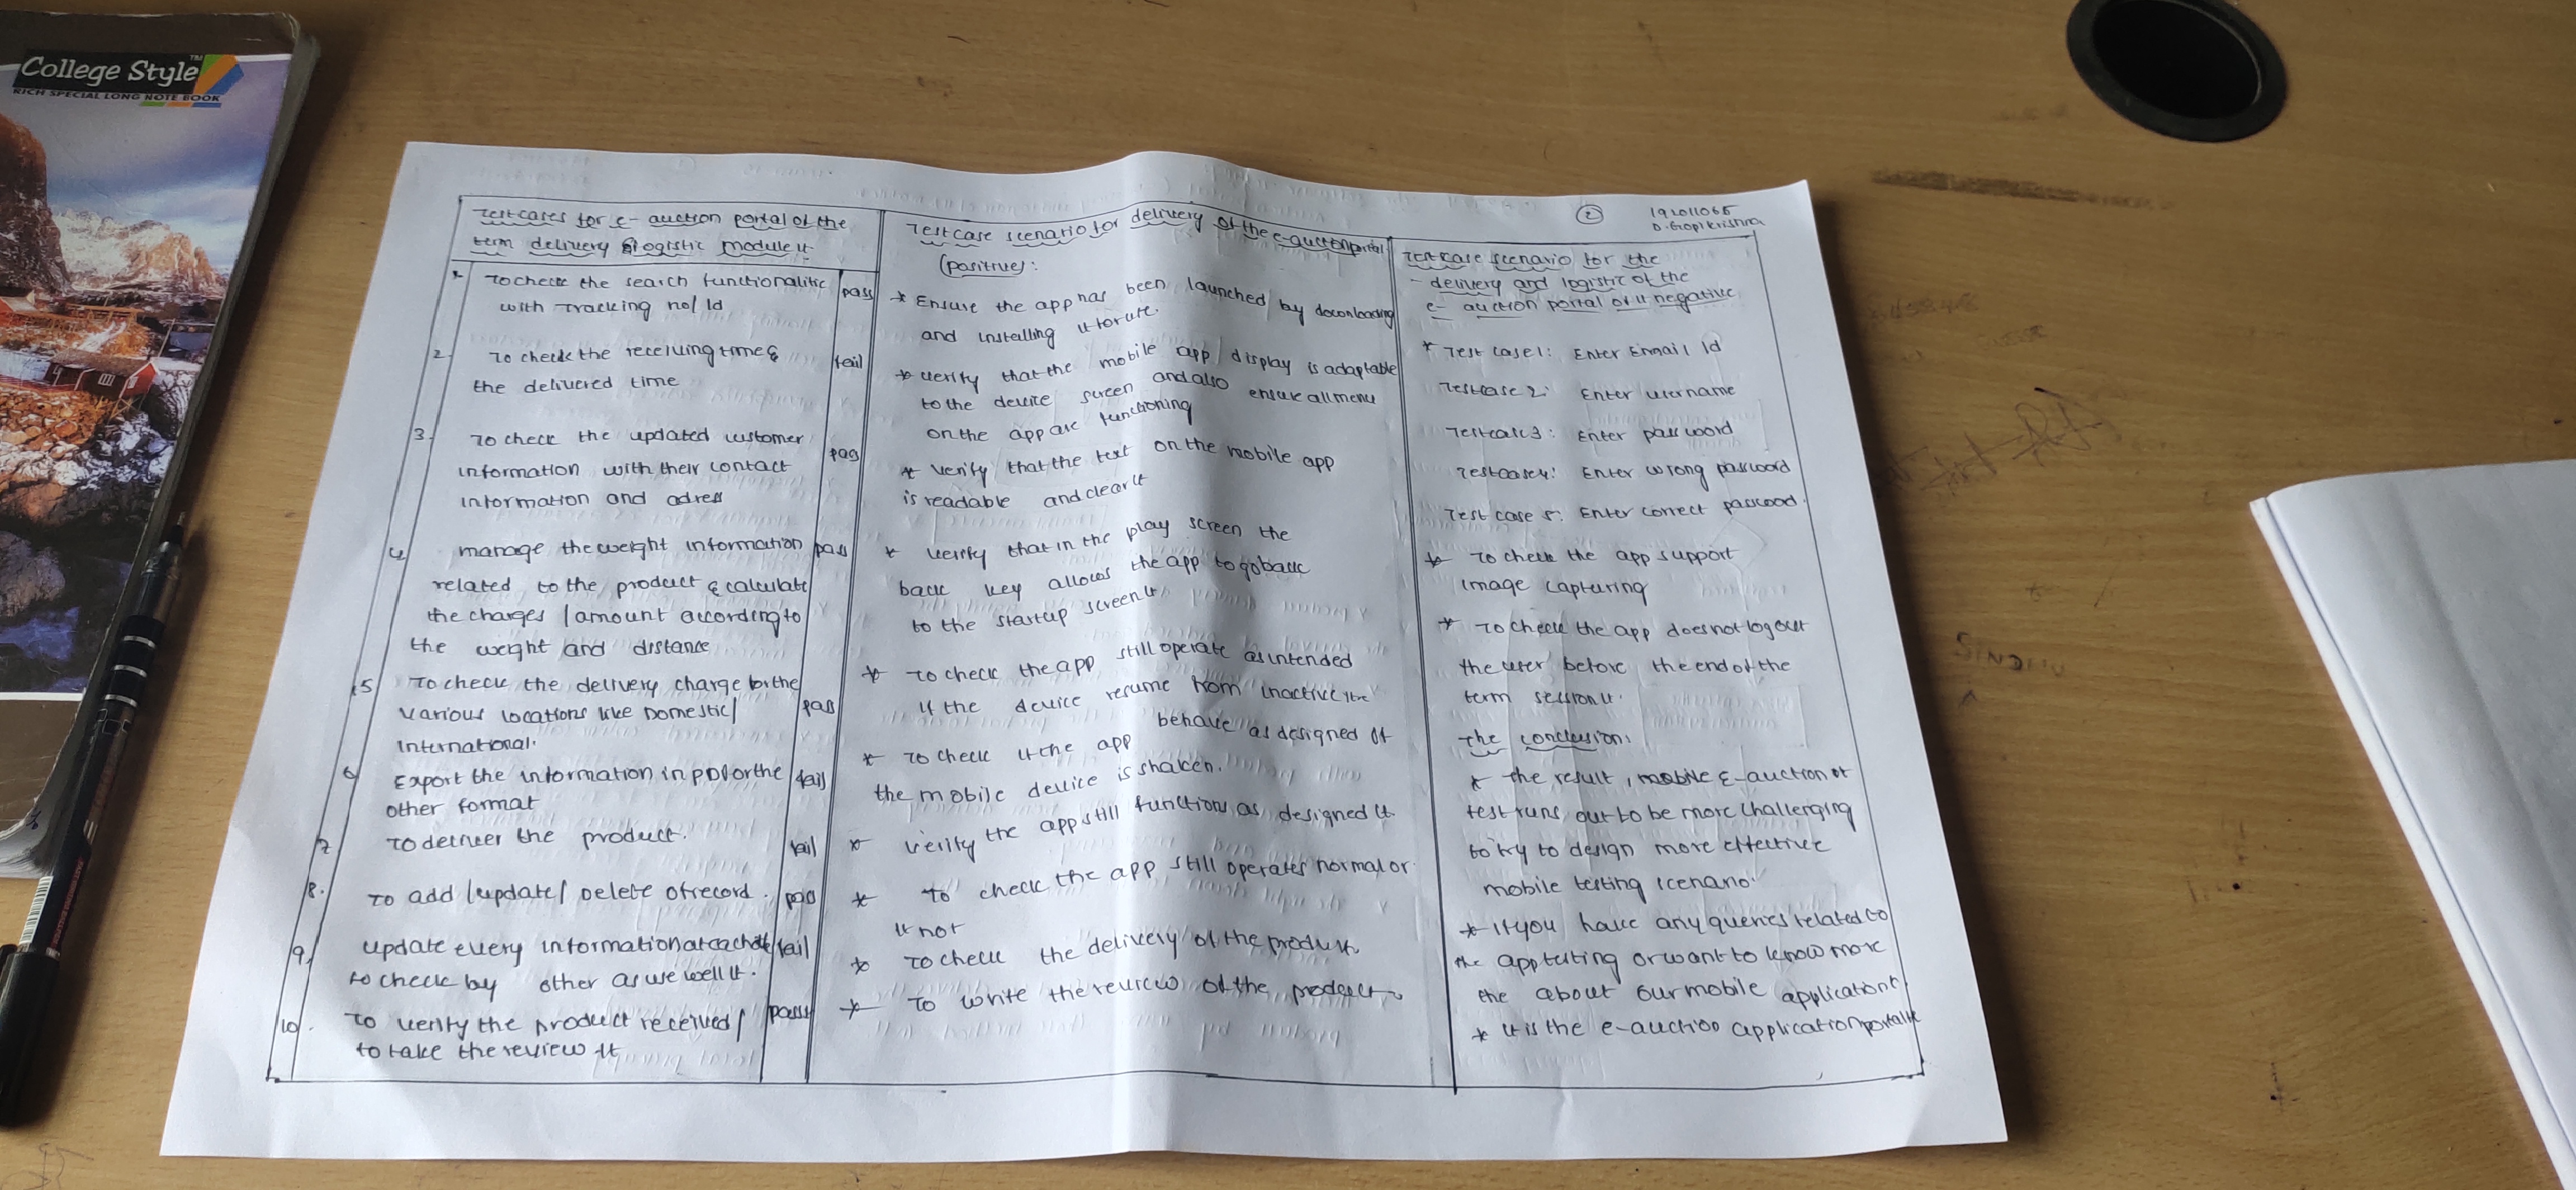 College Style
RICH SPECIAL LONG NOTE BOOK
②
D. Gopi krishna
Test cases for e-auction portal of the
term delivery & logistic module it.
1. To check the search functionalitie
with tracking no/Id
pass
2. To check the receiving time &
the delivered time
fail
3. To check the updated customer
information with their contact
information and adress
pass
4. manage the weight information
related to the product & calculate
the charges / amount according to
the weight and distance
pass
5 To check the delivery charge by the
various locations like Domestic/
International.
pass
6 Export the information in PDF or the
other format
fail
7 To deliver the product.
fail
8. To add /update/ Delete of record.
pass
9. update every information at each
to check by other as we well it.
fail
10. To verify the product received/
to take the review it
pass
Test case scenario for delivery of the e-auction portal
(positive):
* Ensure the app has been launched by downloading
and installing it for use.
* Verify that the mobile app display is adaptable
to the device screen and also ensure all menu
on the app are functioning
* Verify that the text on the mobile app
is readable and clear it
* Verify that in the play screen the
back key allows the app to go back
to the startup screen it.
* To check the app still operate as intended
if the device resume from inactive the
* To check if the app behave as designed if
the mobile device is shaken.
* Verify the app still function as designed it
* to check the app still operates normal or
it not
* To check the delivery of the product.
* To write the review of the product
Test case scenario for the
- delivery and logistic of the
e-auction portal of it negative
* Test case 1: Enter Email id
Test case 2: Enter username
Test case 3: Enter password
Test case 4: Enter wrong password
Test case 5: Enter correct password.
* To check the app support
image capturing
* To check the app does not log out
the user before the end of the
term session it.
The conclusion:
* the result, mobile E-auction of
test runs out to be more challenging
to try to design more effective
mobile testing scenario.
* If you have any queries related to
the app testing or want to know more
the about our mobile application
* It is the e-auction application portal it
SINDHU